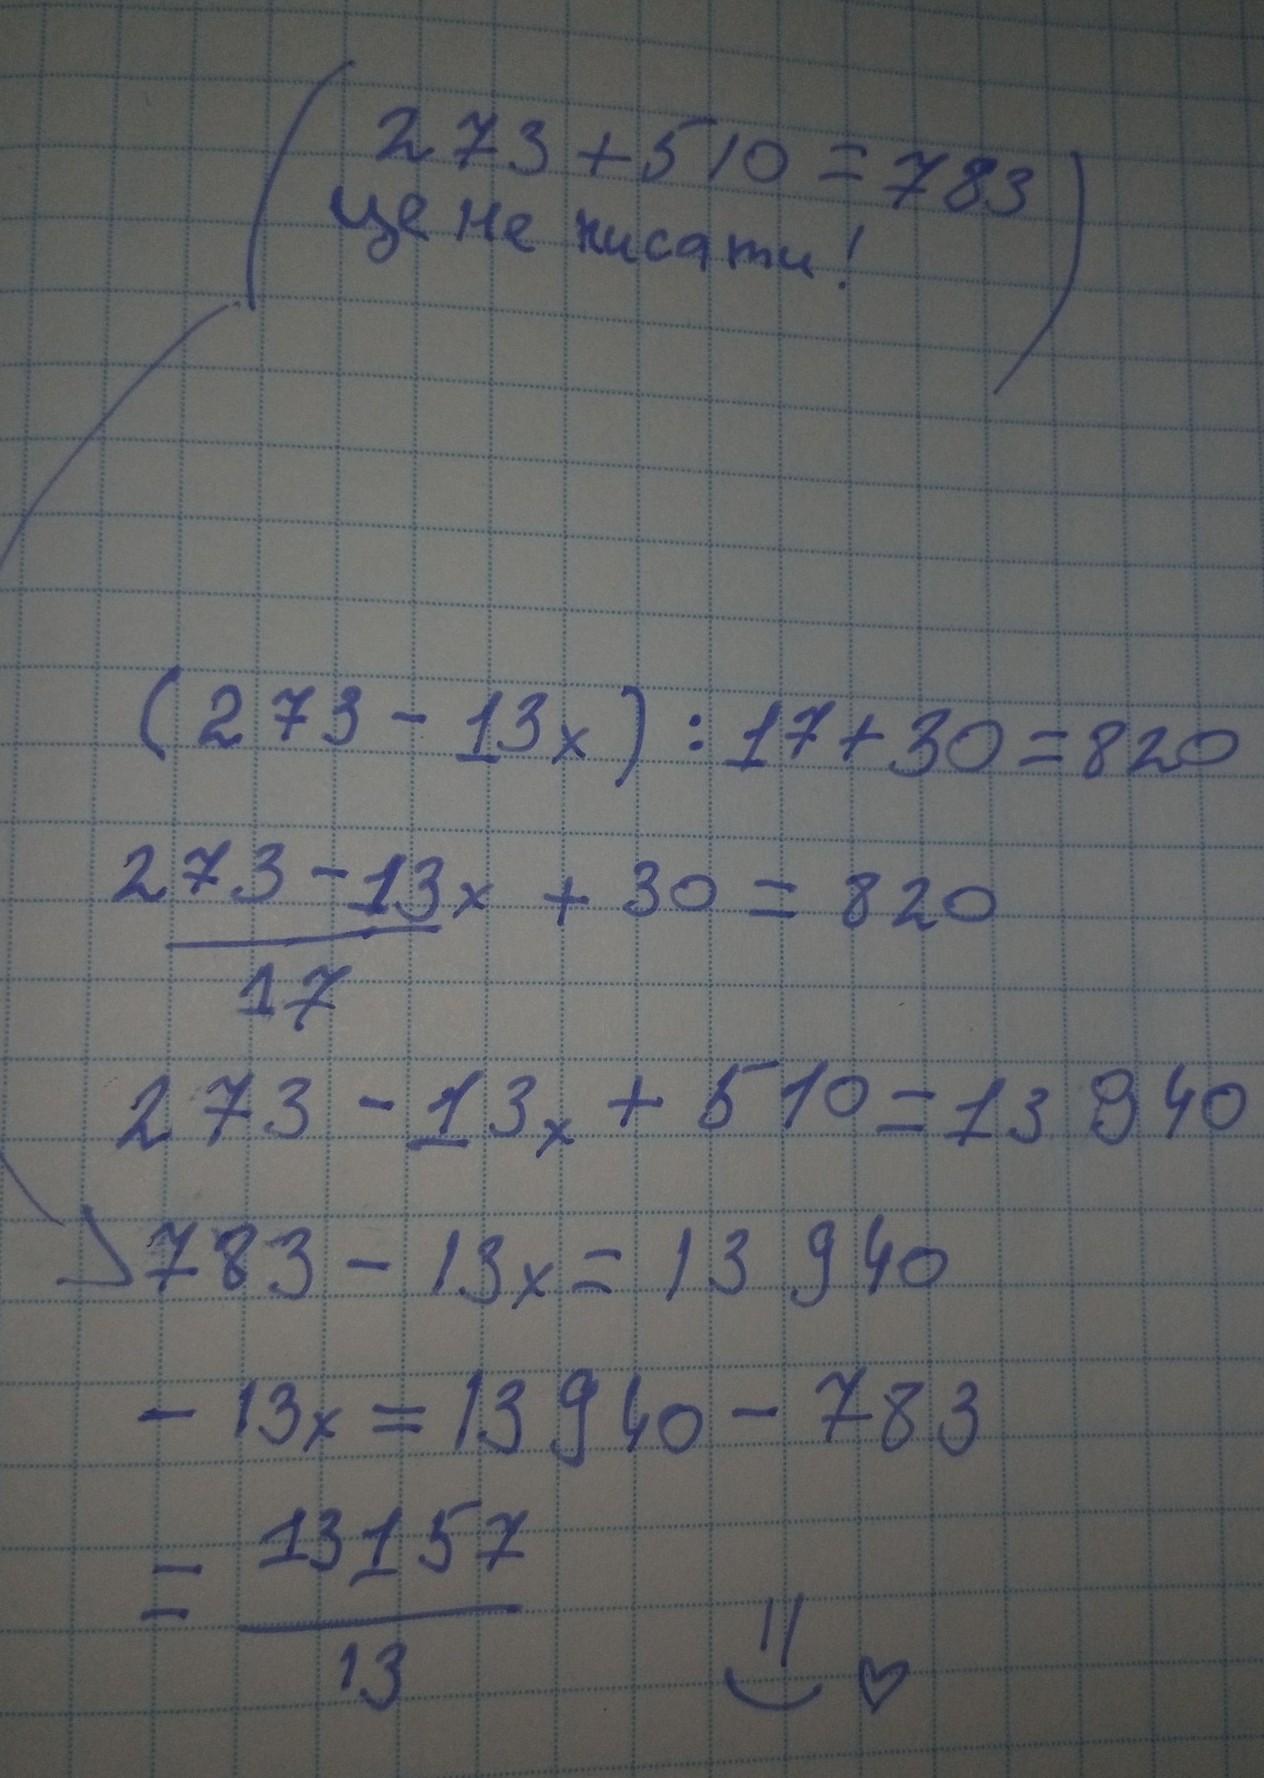 273+510=783
це не писати!
(273-13x):17+30=820
273-13x+30=820
17
273-13x+510=13 940
783-13x=13 940
-13x=13940-783
=13157
13